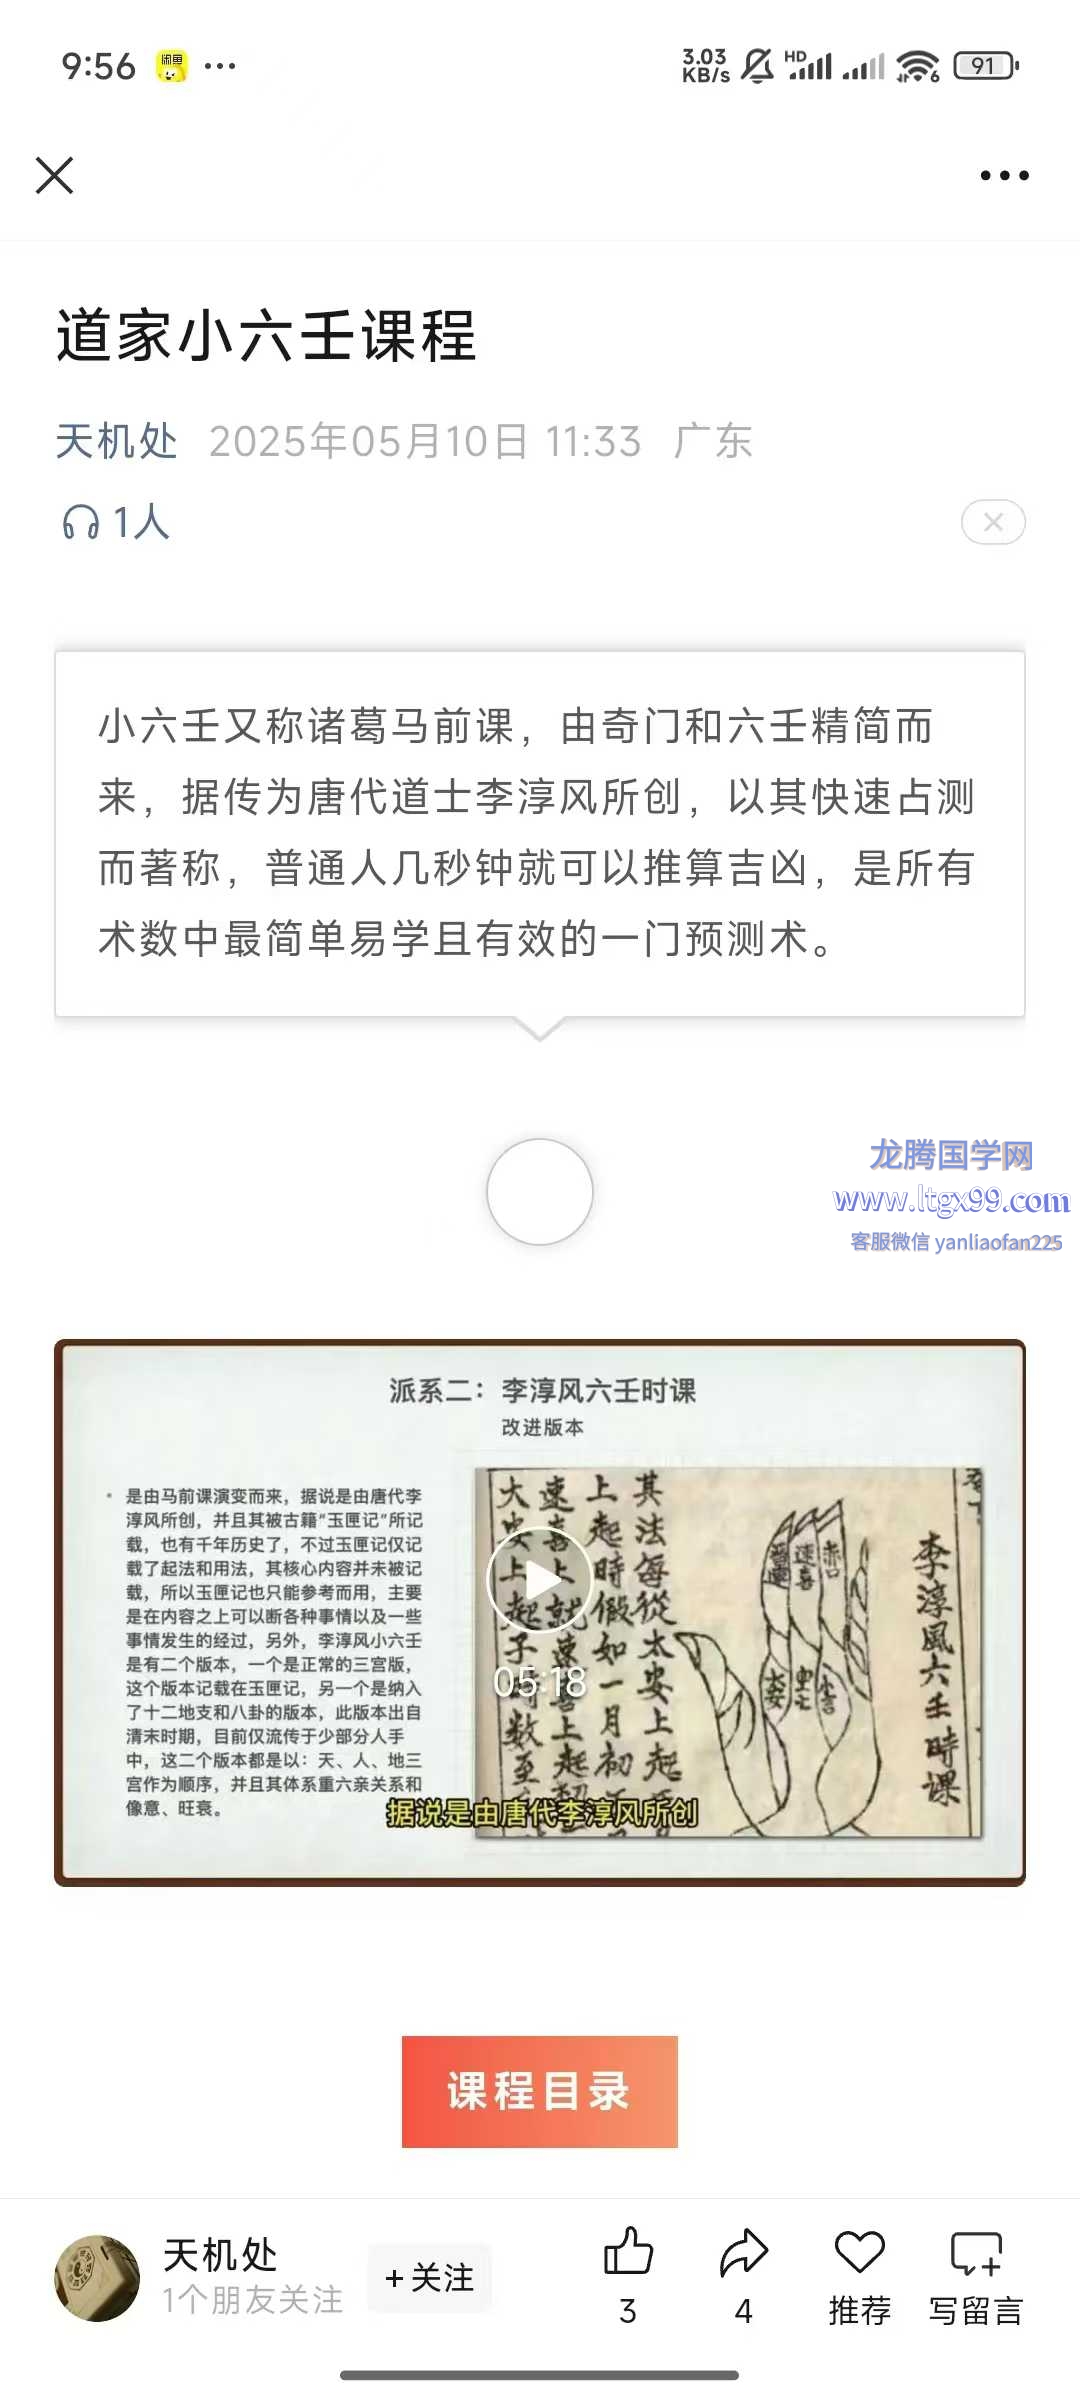 9:56
闲鱼
3.03
KB/s
HD
6
91
道家小六壬课程
天机处 2025年05月10日 11:33 广东
1人
小六壬又称诸葛马前课，由奇门和六壬精简而
来，据传为唐代道士李淳风所创，以其快速占测
而著称，普通人几秒钟就可以推算吉凶，是所有
术数中最简单易学且有效的一门预测术。
龙腾国学网
www.ltgx99.com
客服微信 yanliaofan225
派系二：李淳风六壬时课
改进版本
是由马前课演变而来，据说是由唐代李
淳风所创，并且其被古籍“玉匣记”所记
载，也有千年历史了，不过玉匣记仅记
载了起法和用法，其核心内容并未被记
载，所以玉匣记也只能参考而用，主要
是在内容之上可以断各种事情以及一些
事情发生的经过，另外，李淳风小六壬
是有二个版本，一个是正常的三宫版，
这个版本记载在玉匣记，另一个是纳入
了十二地支和八卦的版本，此版本出自
清末时期，目前仅流传于少部分人手
中，这二个版本都是以：天、人、地三
宫作为顺序，并且其体系重六亲关系和
像意、旺衰。
李淳風六壬時課
留連
速喜
赤口
大安
空亡
小吉
其法每從大安上起
上起時假如一月初
速喜上就速喜上起
大安上起子時数至
05:18
据说是由唐代李淳风所创
课程目录
天机处
1个朋友关注
+关注
3
4
推荐
写留言